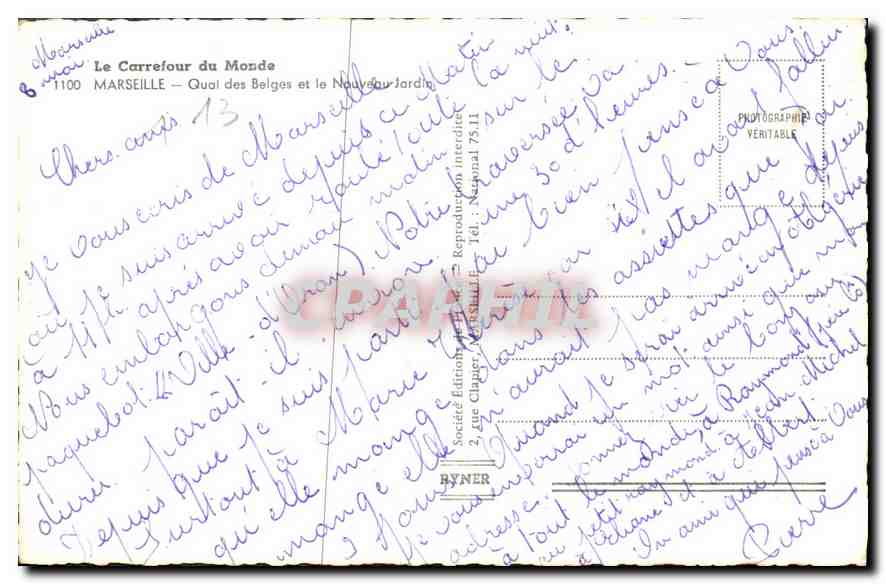 Marseille
8 mai
Le Carrefour du Monde
1100 MARSEILLE — Quai des Belges et le Nouveau Jardin
13
Chers amis
Je vous écris de Marseille
où je suis arrivé depuis ce Matin
à 11 h. après avoir roulé toute la nuit.
Nous embarquons demain matin sur le
paquebot (Ville d'Oran) Notre traversée va
durer paraît-il environ une 30 d'heures.
Depuis que je suis parti j'ai bien pensé à Vous.
Surtout à Marie
qu'elle mange dans les assiettes que
mange elle n'aurait pas mangé depuis
2 jours Quand je serai arrivé en Algérie
Je vous enverrai un mot ainsi que mon
adresse. Donner le bonjour
à tout le monde, à Raymond
au petit raymond à Jean Michel
à et à Albert.
Un ami qui pense à Vous
Pierre
PHOTOGRAPHIE
VÉRITABLE
Société Éditions Reproduction interdite
2, rue Clapier, MARSEILLE Tél. : National 75.11
RYNER
CPARAMA